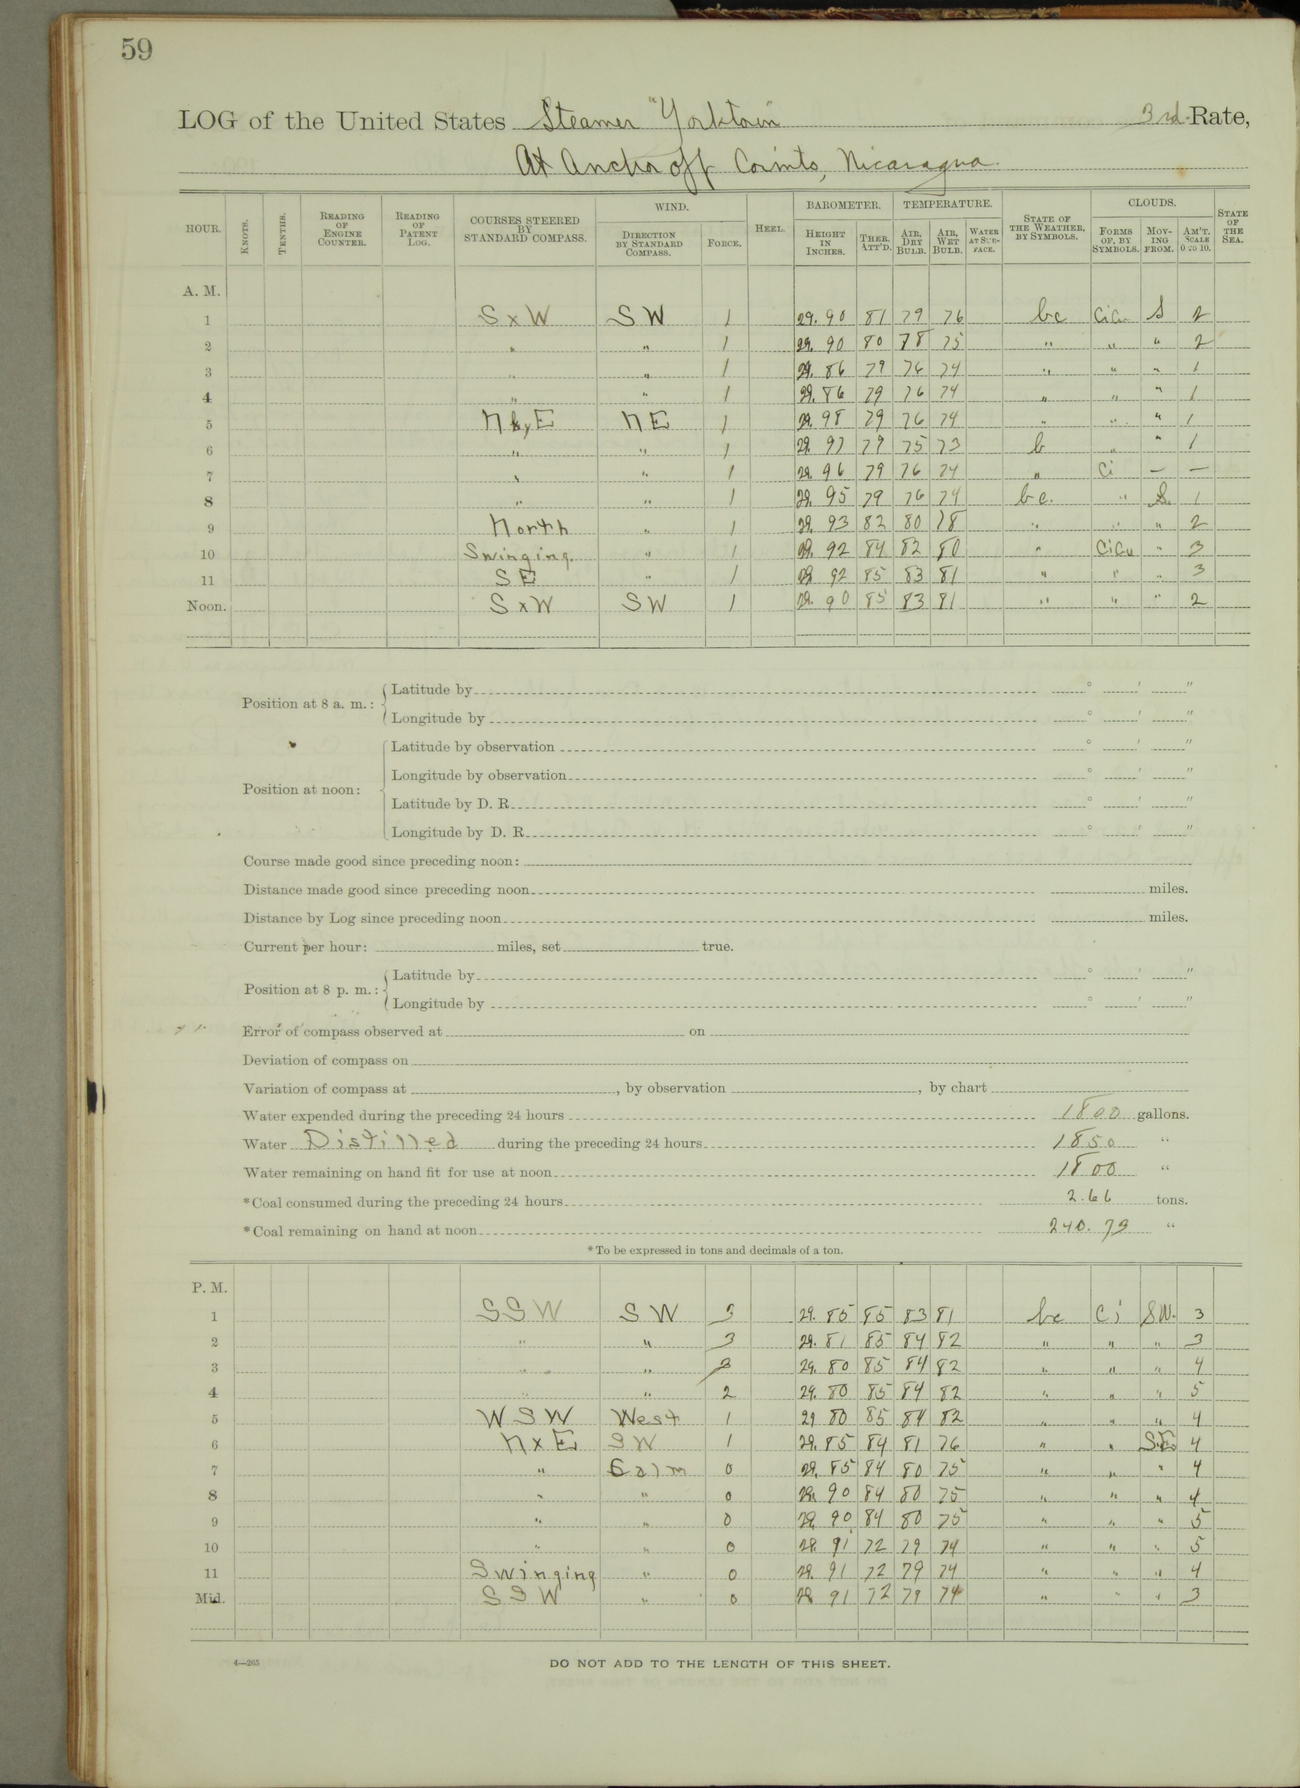 59
LOG of the United States Steamer "Yorktown" 3rd Rate,
At Anchor off Corinto, Nicaragua.
HOUR. KNOTS. TENTHS. READING OF ENGINE COUNTER. READING OF PATENT LOG. COURSES STEERED BY STANDARD COMPASS. WIND. DIRECTION BY STANDARD COMPASS. FORCE. HEEL. BAROMETER. HEIGHT IN INCHES. THER. ATT'D. TEMPERATURE. AIR, DRY BULB. AIR, WET BULB. WATER AT SUR-FACE. STATE OF THE WEATHER, BY SYMBOLS. CLOUDS. FORMS OF, BY SYMBOLS. MOV-ING FROM. AM'T. SCALE 0 TO 10. STATE OF THE SEA.
A. M.
1 SxW SW 1 29.90 81 79 76 bc CiCu S 2
2 " " 1 29.90 80 78 75 " " " 2
3 " " 1 29.86 79 76 74 " " " 1
4 " " 1 29.86 79 76 74 " " " 1
5 NbyE NE 1 29.98 79 76 74 " " " 1
6 " " 1 29.97 79 75 73 b " " 1
7 " " 1 29.96 79 76 74 " Ci — —
8 " " 1 29.95 79 76 74 bc. " S. 1
9 North " 1 29.93 82 80 78 " " " 2
10 Swinging. " 1 29.92 84 82 80 " CiCu " 3
11 SE " 1 29 92 85 83 81 " " " 3
Noon. SxW SW 1 29.90 85 83 81 " " " 2
Position at 8 a. m.: Latitude by ° ' "
Longitude by ° ' "
Position at noon: Latitude by observation ° ' "
Longitude by observation ° ' "
Latitude by D. R. ° ' "
Longitude by D. R. ° ' "
Course made good since preceding noon:
Distance made good since preceding noon miles.
Distance by Log since preceding noon miles.
Current per hour: miles, set true.
Position at 8 p. m.: Latitude by ° ' "
Longitude by ° ' "
Error of compass observed at on
Deviation of compass on
Variation of compass at , by observation , by chart
Water expended during the preceding 24 hours 1800 gallons.
Water Distilled during the preceding 24 hours 1850 "
Water remaining on hand fit for use at noon 1800 "
*Coal consumed during the preceding 24 hours 2.66 tons.
*Coal remaining on hand at noon 240.79 "
*To be expressed in tons and decimals of a ton.
P. M.
1 SSW SW 3 29.85 85 83 81 bc Ci SW. 3
2 " " 3 29.81 85 84 82 " " " 3
3 " " 29.80 85 84 82 " " " 4
4 " " 2 29.80 85 84 82 " " " 5
5 WSW West 1 29 80 85 84 82 " " " 4
6 NxE SW 1 29.85 84 81 76 " " SE 4
7 " Calm 0 29.85 84 80 75 " " " 4
8 " " 0 29.90 84 80 75 " " " 4
9 " " 0 29.90 84 80 75 " " " 5
10 " " 0 29.91 72 79 74 " " " 5
11 Swinging " 0 29.91 72 79 74 " " " 4
Mid. SSW " 0 29 91 72 79 74 " " " 3
4—265
DO NOT ADD TO THE LENGTH OF THIS SHEET.